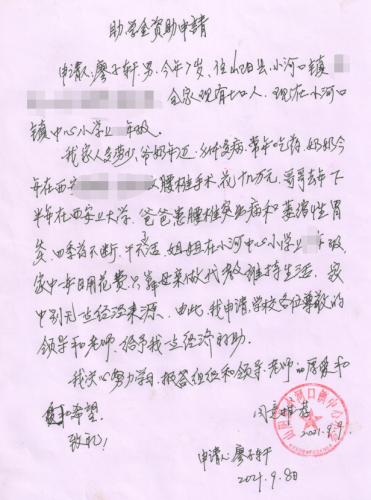 助学金资助申请
申请人:廖子轩,男,今年7岁,住山阳县小河口镇
全家现有七口人,现在小河口
镇中心小学 年级。
我家人多劳少,爷奶年迈,身体多病,常年吃药,奶奶今
年在西安 做腰椎手术,花十几万元,哥哥去年下
半年在西安上大学,爸爸患腰椎 病和萎缩性胃
炎,四季药不断,干不了活,姐姐在小河中心小学 年级,
家中一年日用花费只靠母亲做代教维持生活,家
中别无一些经济来源。由此,我申请学校各位尊敬的
领导和老师,给予我一些经济的帮助。
我决心努力学习,报答组织和领导、老师的厚爱和
希望。
致礼!
同意推荐
2021.9.9.
申请人:廖子轩
2021.9.8日